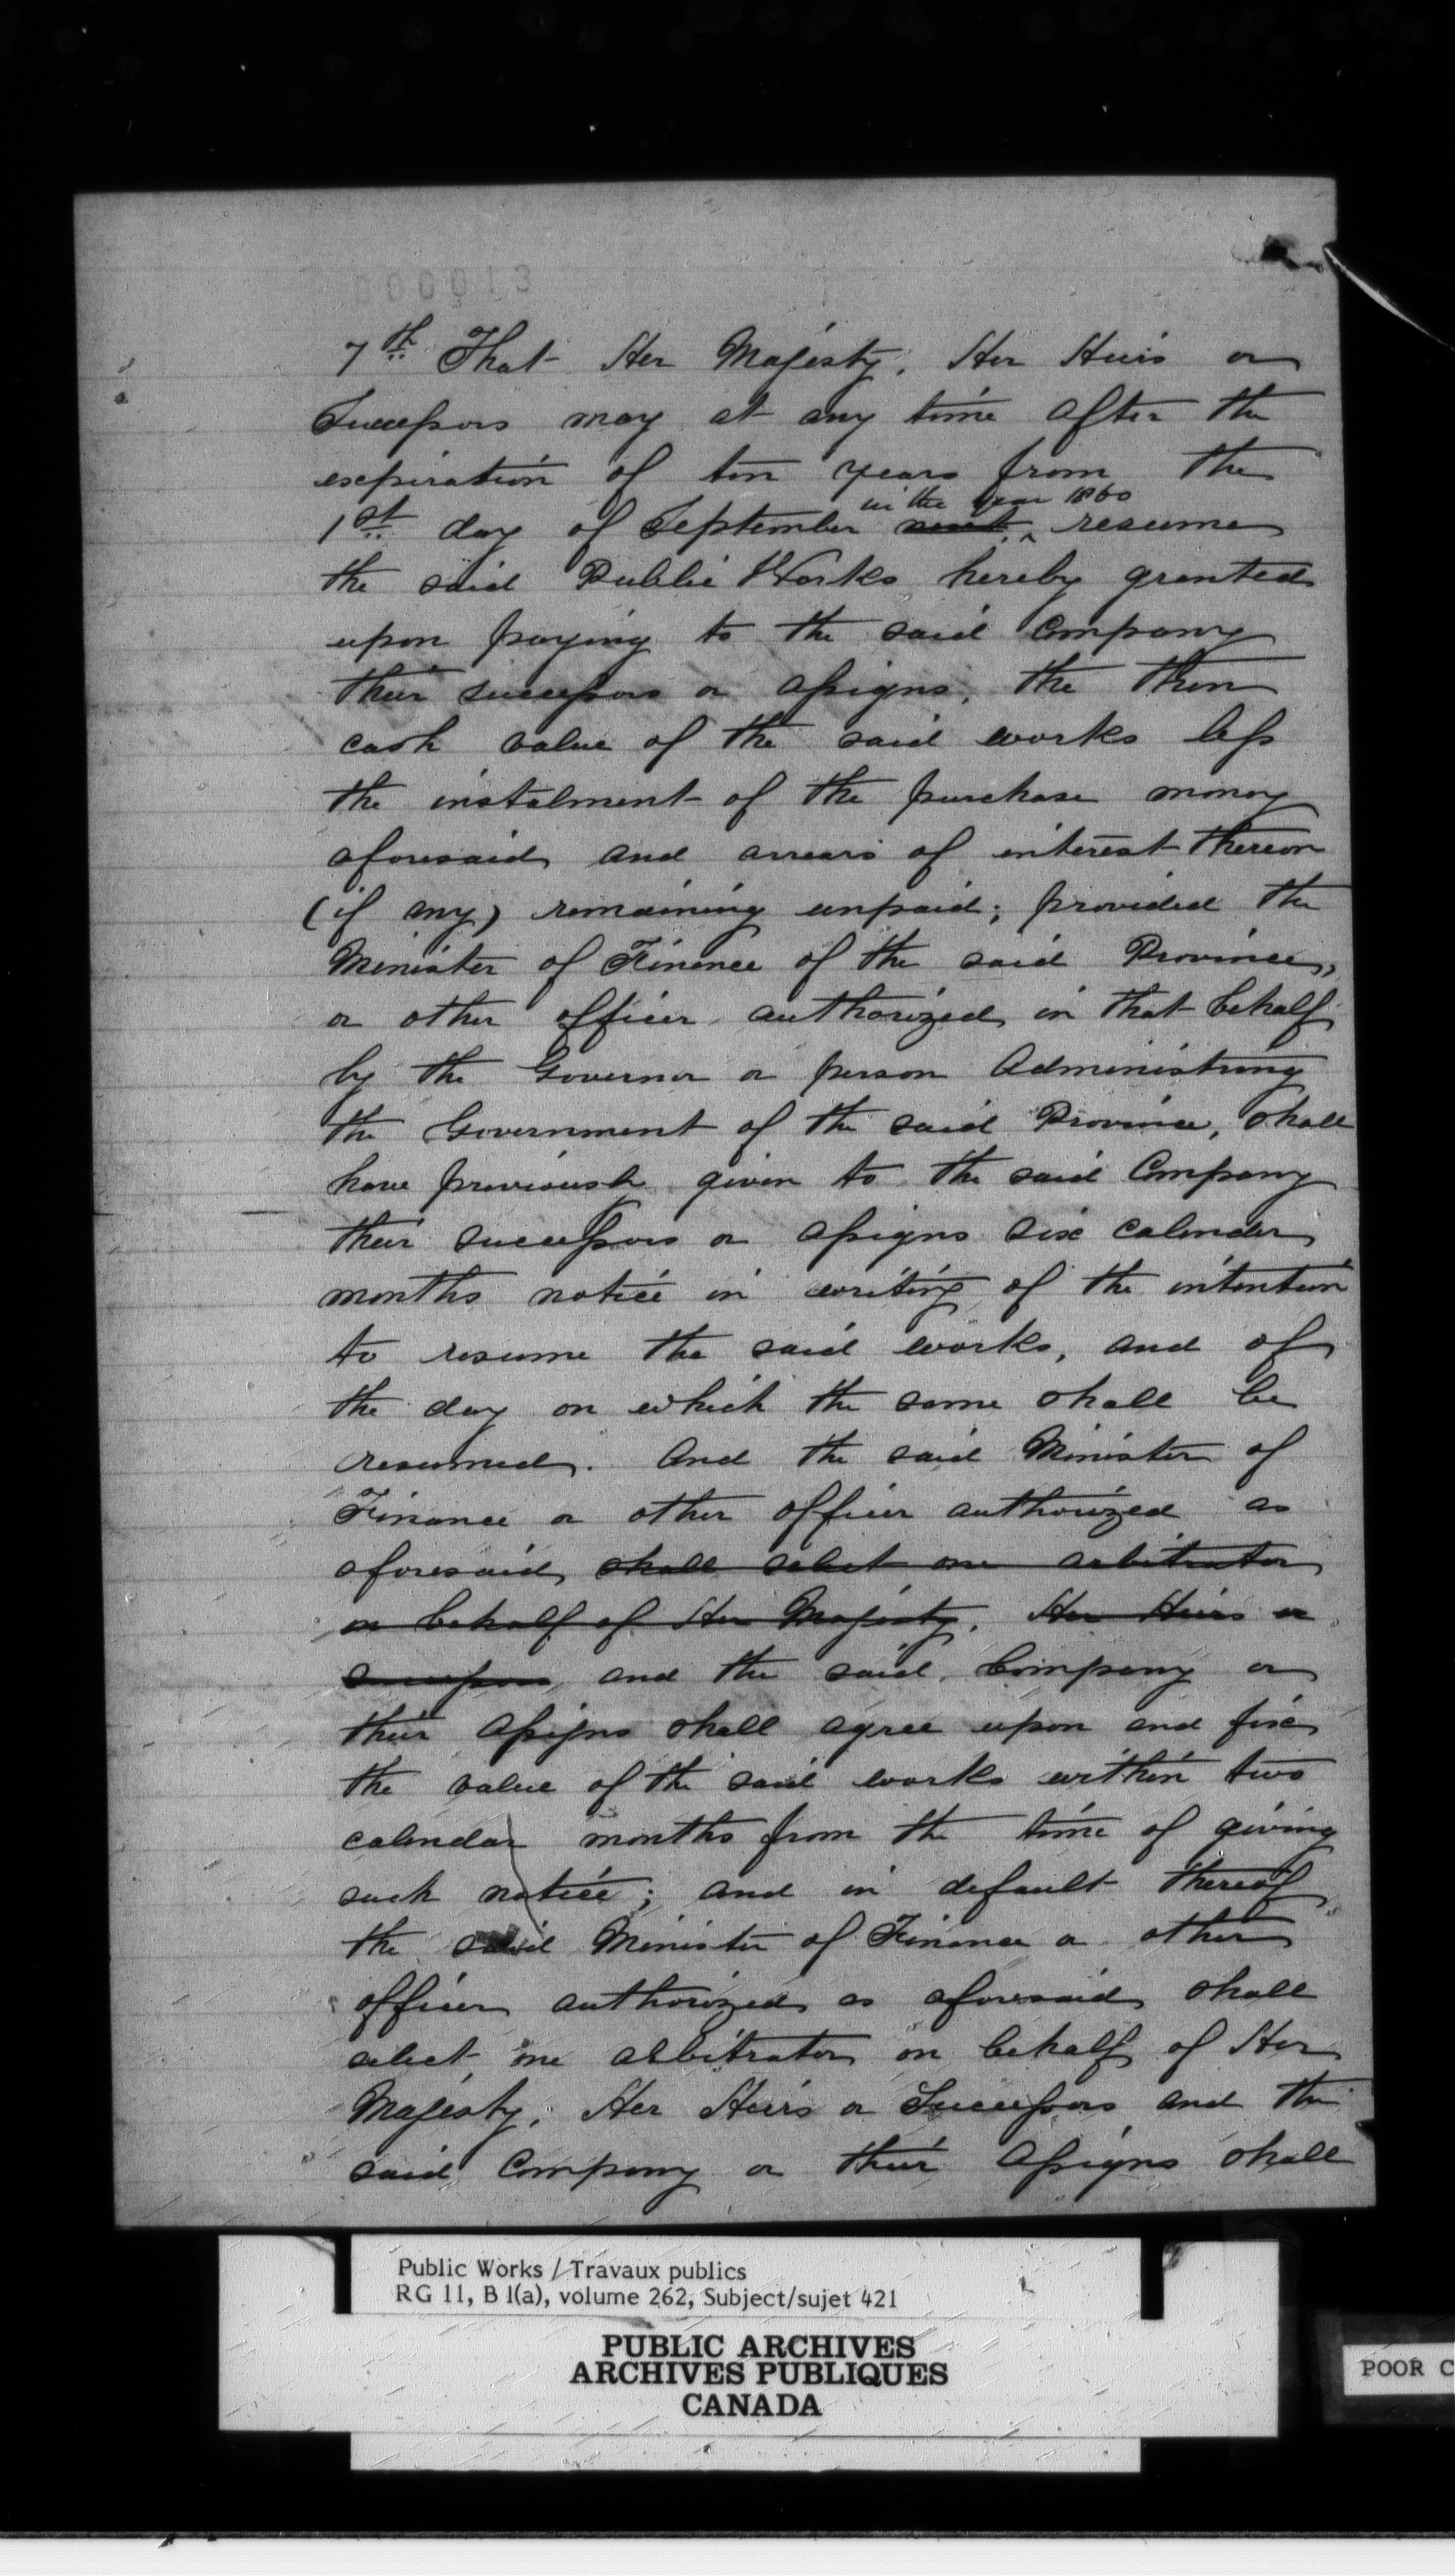 000013
7th That Her Majesty, Her Heirs or
Successors may at any time after the
expiration of ten years from the
in the year 1860
1st day of September next, ^ resume
the said Public Works hereby granted
upon paying to the said Company
their successors or assigns, the then
cash value of the said works less
the instalment of the purchase money
aforesaid and arrears of interest thereon
(if any) remaining unpaid; provided the
Minister of Finance of the said Province,
or other officer authorized in that behalf
by the Governor or person Administring
the Government of the said Province, shall
have previously given to the said Company
their successors or assigns six calender
months notice in writing of the intention
to resume the said works, and of
the day on which the same shall be
resumed. And the said Minister of
Finance or other officer authorized as
aforesaid shall select one arbitrator
on behalf of Her Majesty, Her Heirs or
successors, and the said Company or
their Assigns shall agree upon and fix
the value of the said works within two
calendar months from the time of giving
such notice; and in default thereof
the said Minister of Finance or other
officer authorized as aforesaid shall
select one arbitrator on behalf of Her
Majesty, Her Heirs or Successors and the
said Company or their Assigns shall
Public Works / Travaux publics
RG 11, B 1(a), volume 262, Subject/sujet 421
PUBLIC ARCHIVES
ARCHIVES PUBLIQUES
CANADA
POOR C